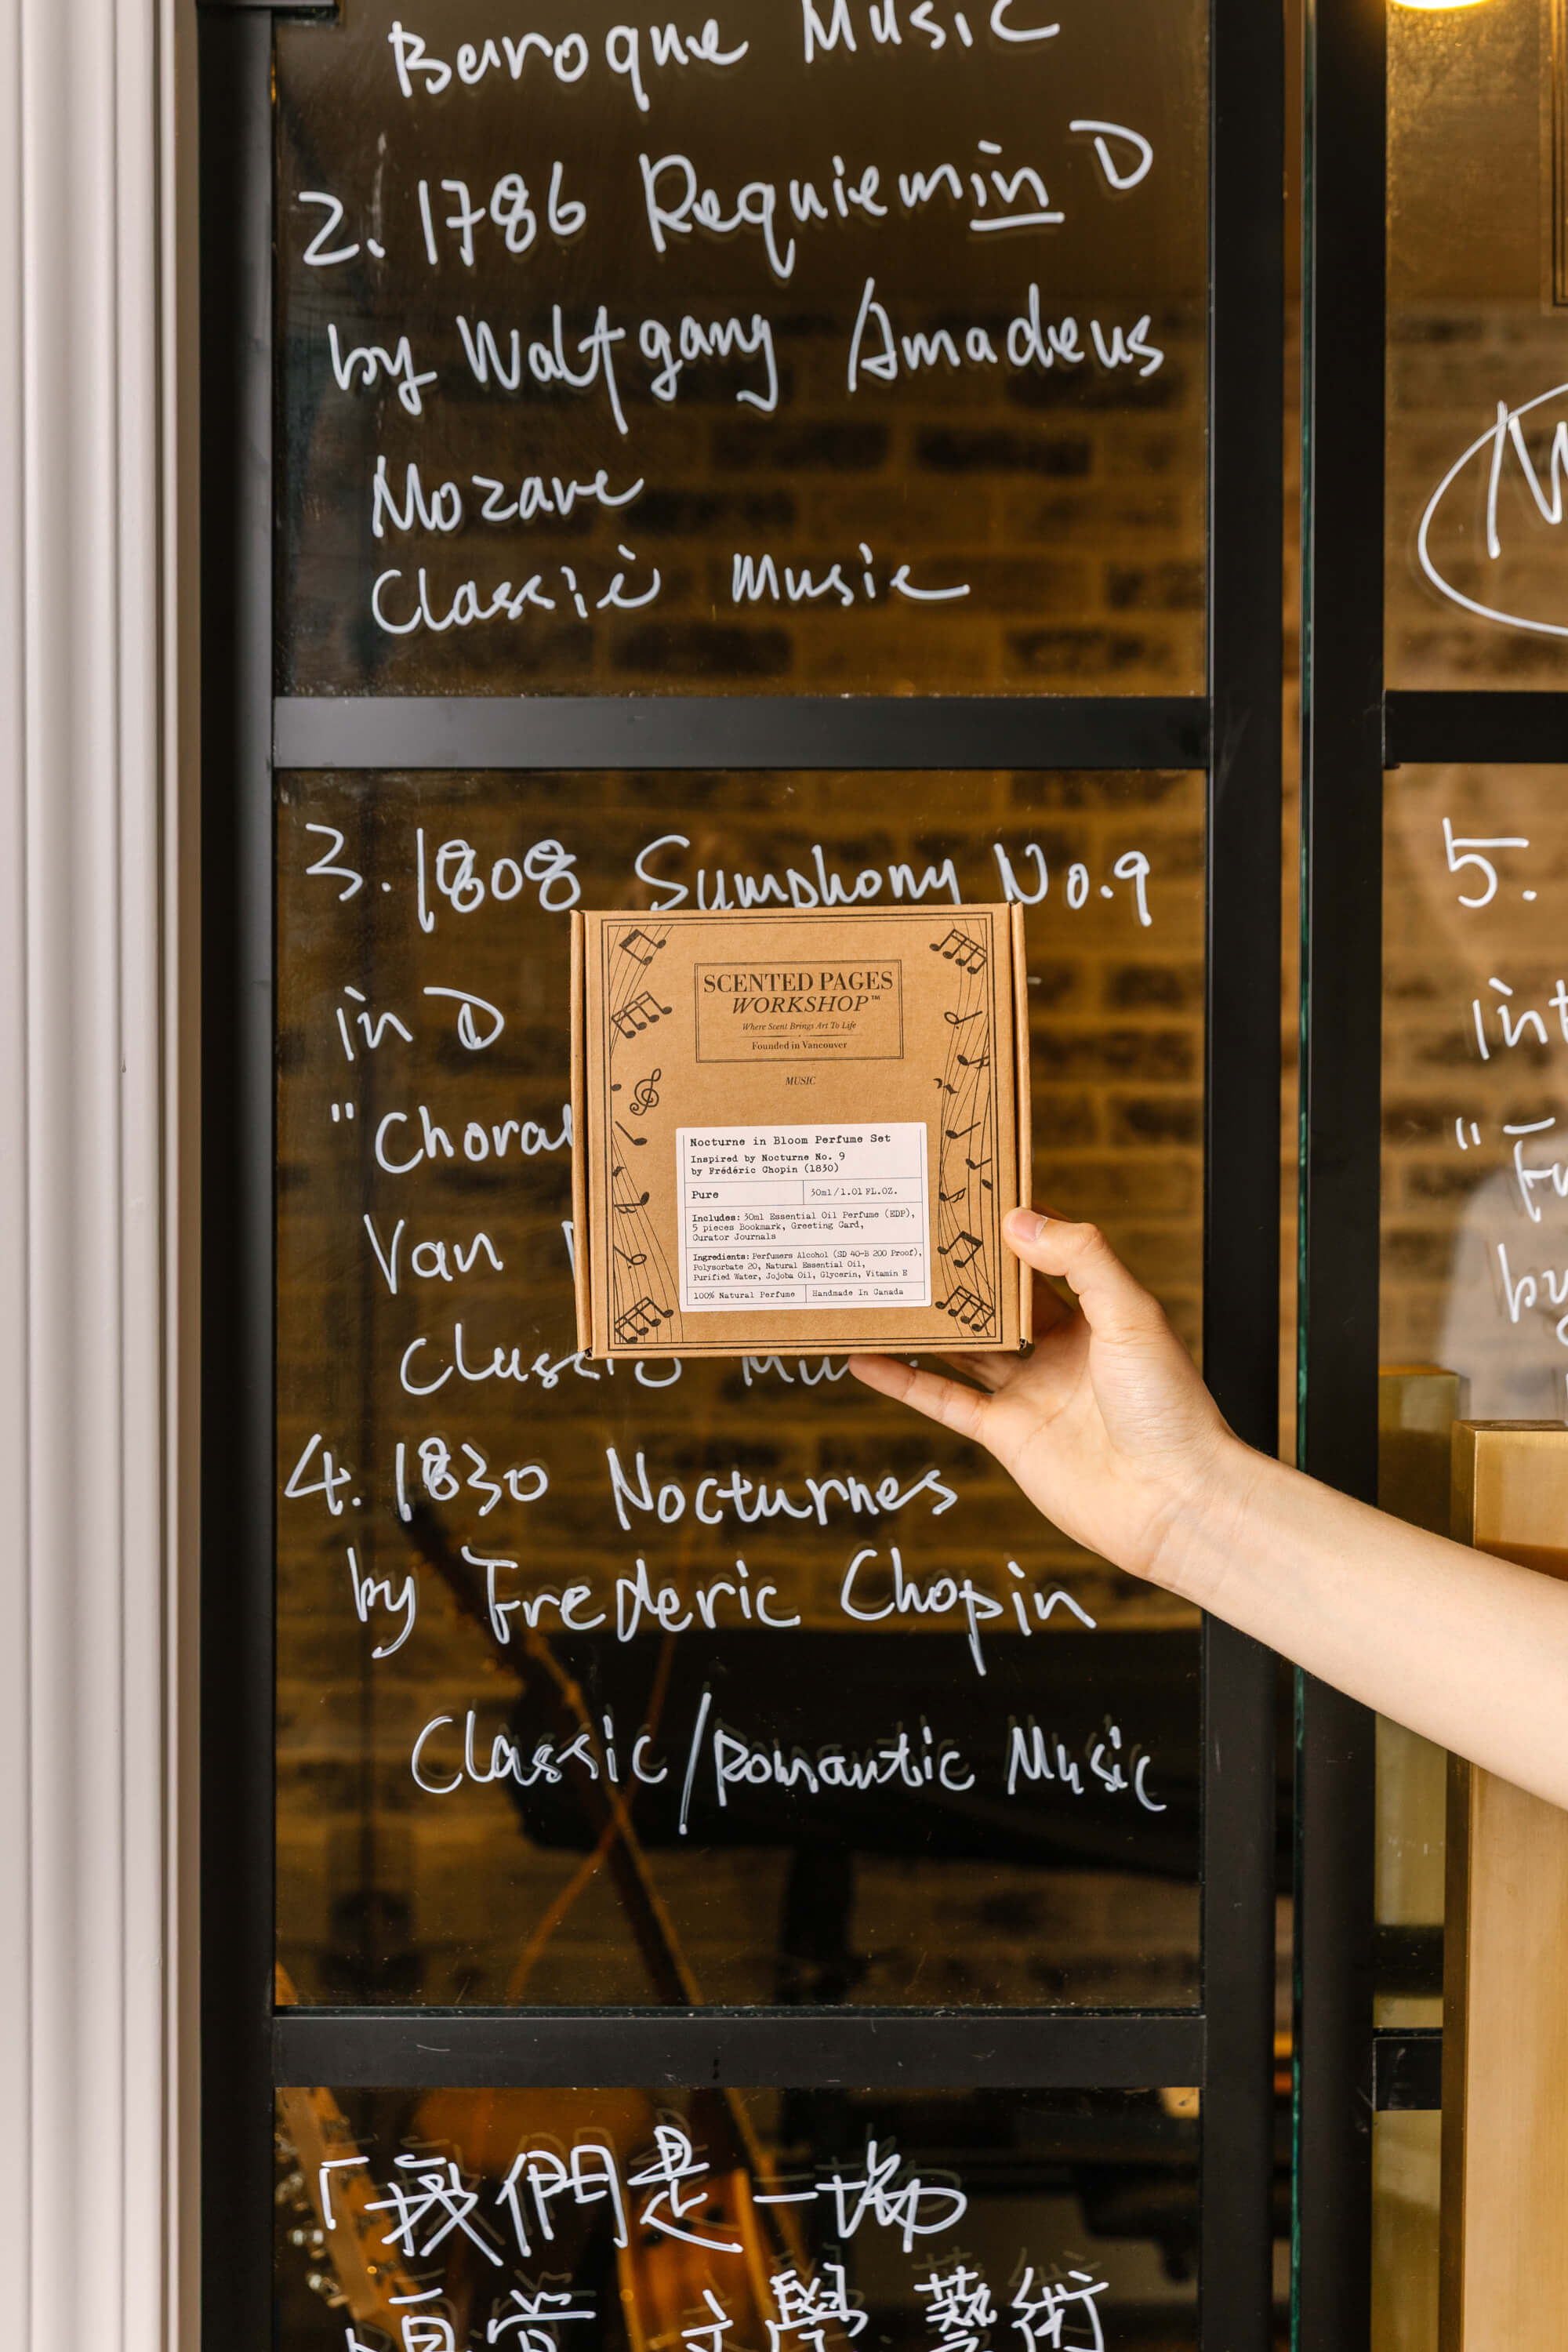 Baroque Music
2. 1786 Requiem in D
by Wolfgang Amadeus
Mozart
Classic Music
3. 1808 Symphony No.9
in D
"Choral
Van
Classic Mu
4. 1830 Nocturnes
by Frederic Chopin
Classic/Romantic Music
「我們是一場
文學 藝術
SCENTED PAGES
WORKSHOP™
Where Scent Brings Art To Life
Founded in Vancouver
MUSIC
Nocturne in Bloom Perfume Set
Inspired by Nocturne No. 9
by Frédéric Chopin (1830)
Pure
30ml/1.01 FL.OZ.
Includes: 30ml Essential Oil Perfume (EDP),
5 pieces Bookmark, Greeting Card,
Curator Journals
Ingredients: Perfumers Alcohol (SD 40-B 200 Proof),
Polysorbate 20, Natural Essential Oil,
Purified Water, Jojoba Oil, Glycerin, Vitamin E
100% Natural Perfume
Handmade In Canada
5.
by